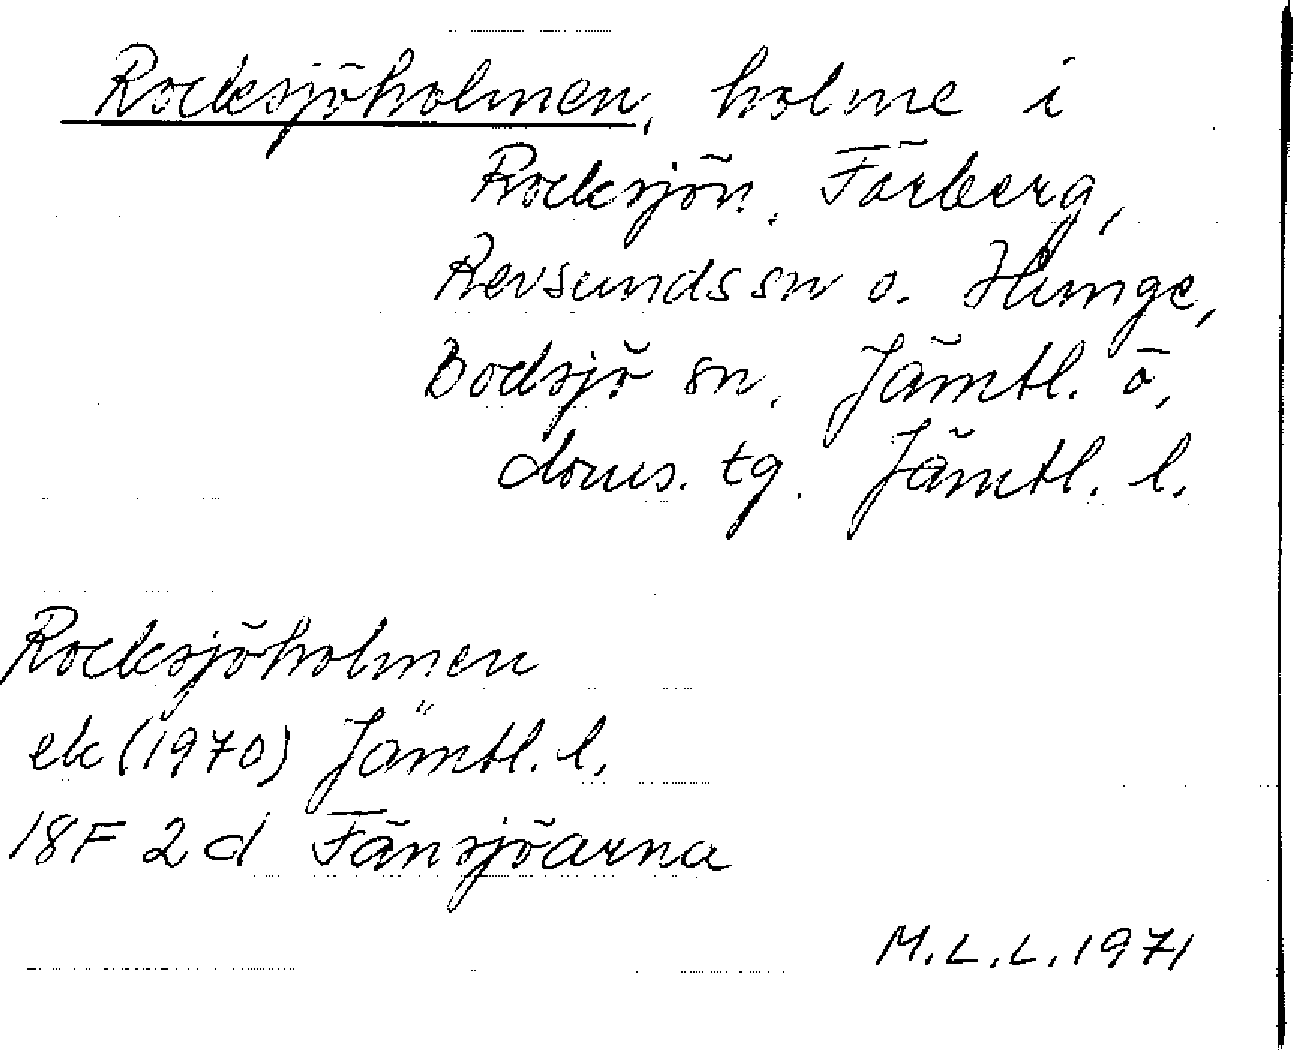 Rocksjöholmen, holme i
Rocksjön, Fårberg,
Revsunds sn o. Hunge,
Bodsjö sn, Jämtl. ö.
doms. tg. Jämtl. l.
Rocksjöholmen
ek (1970) Jämtl. l.
18F 2d Fånsjöarna
M.L.L. 1971